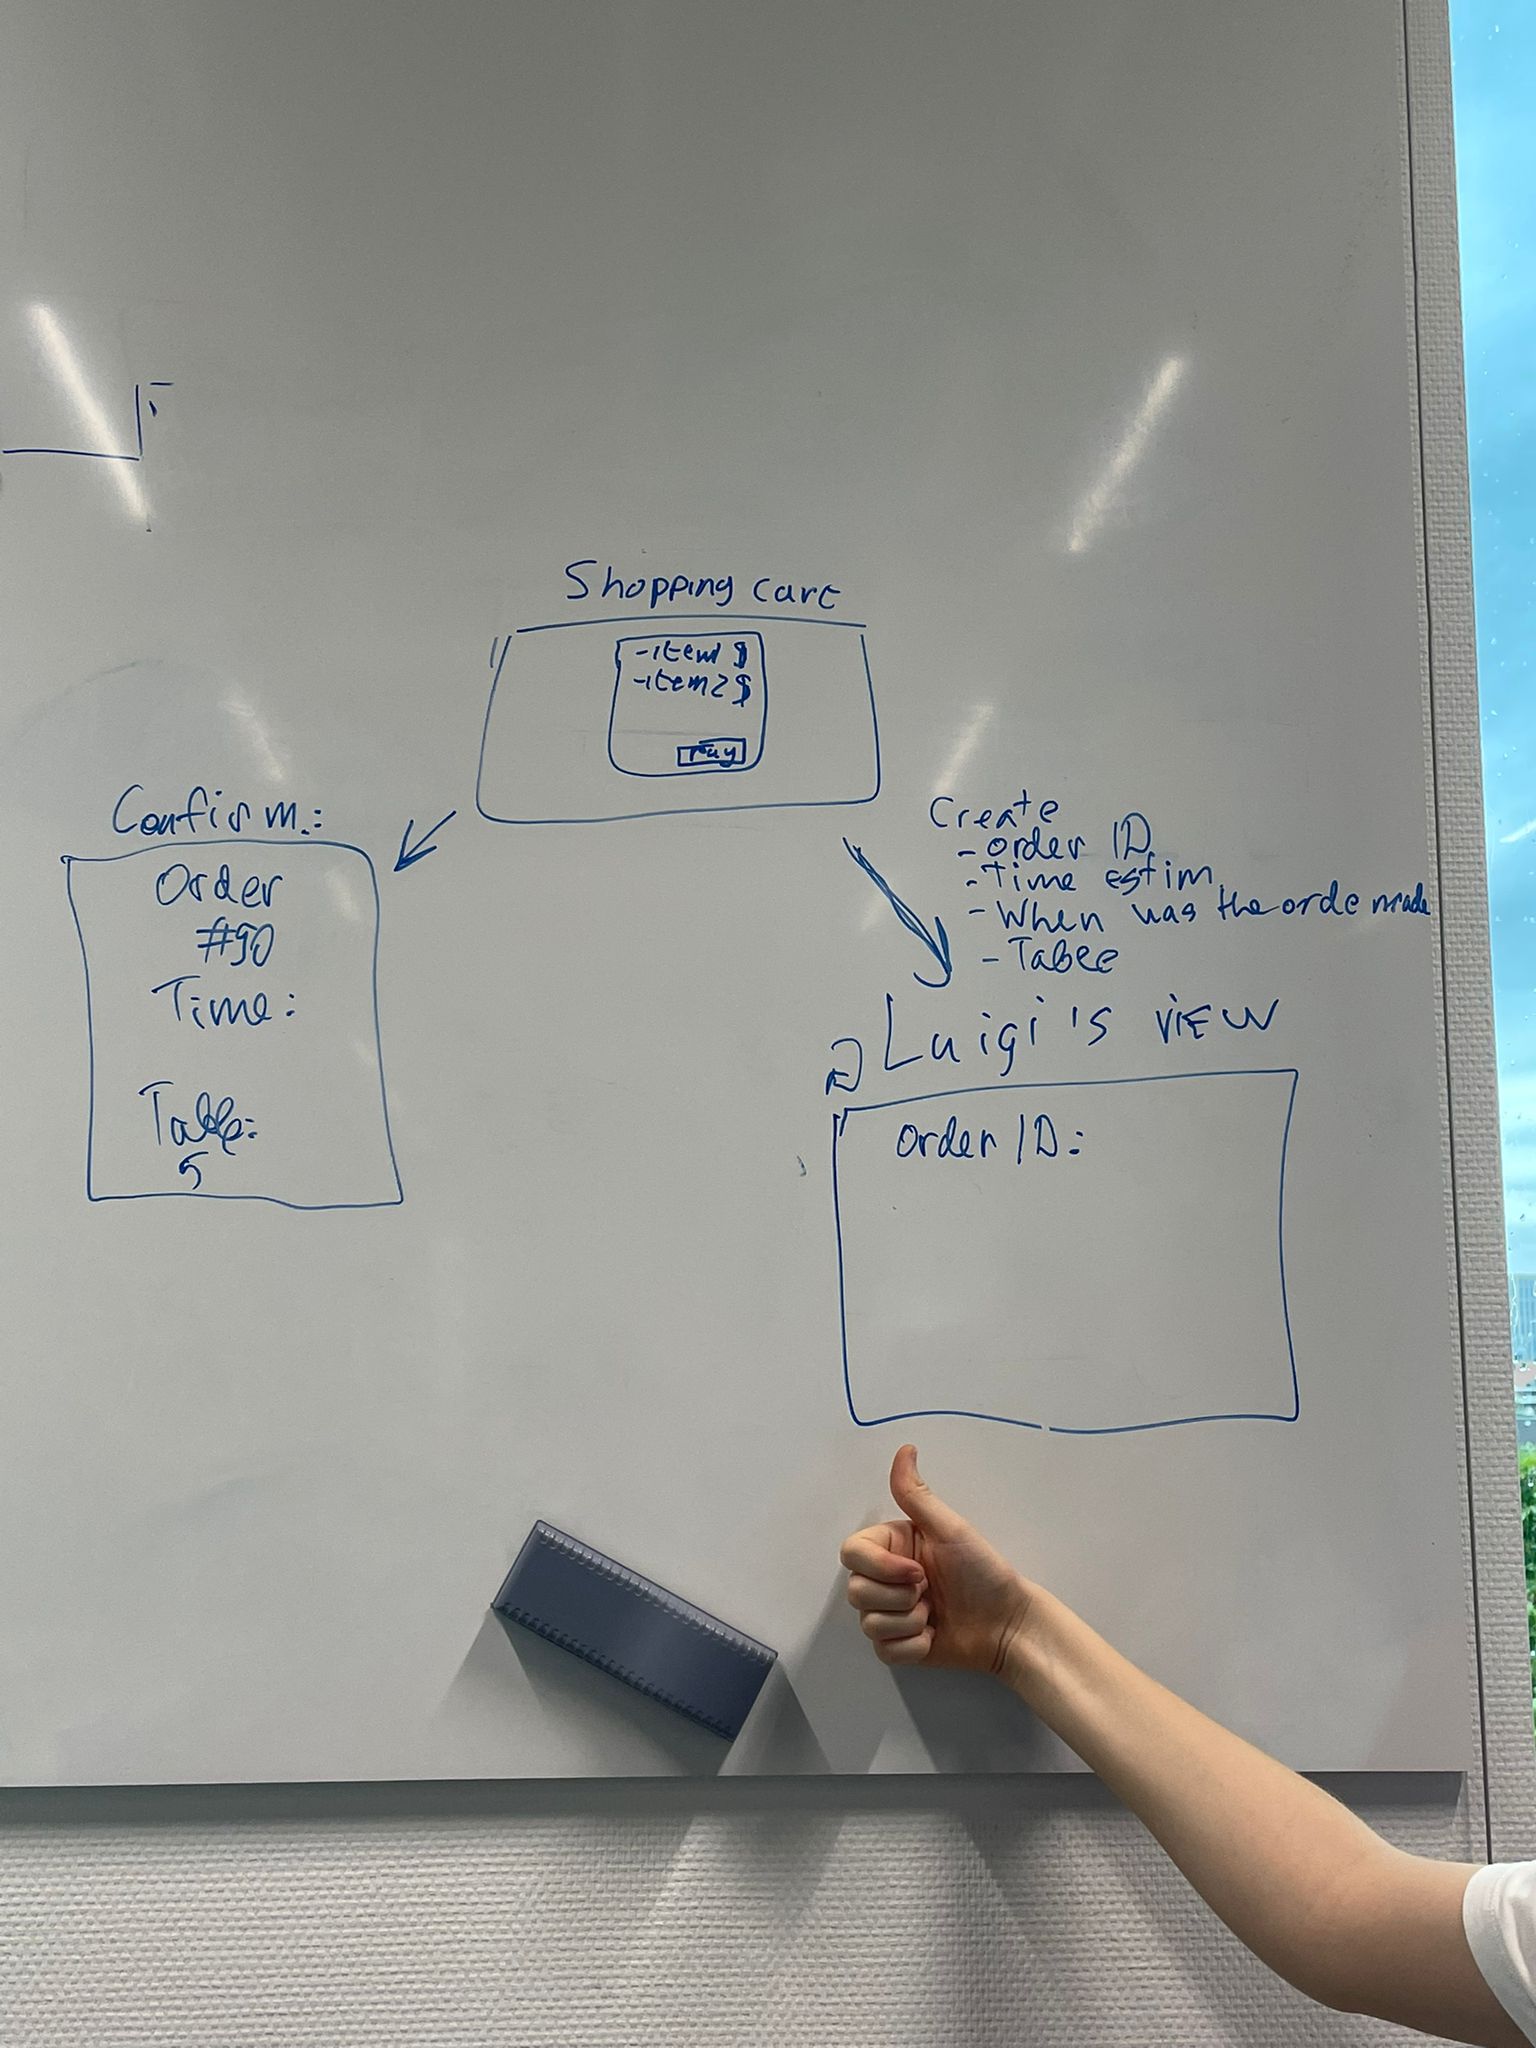 Shopping cart
-item1 $
-item2 $
Pay
Confirm.:
Order
#90
Time:
Table:
5
Create
- order ID
- Time estim.
- When was the orde made
- Table
Luigi's VIEW
Order ID: